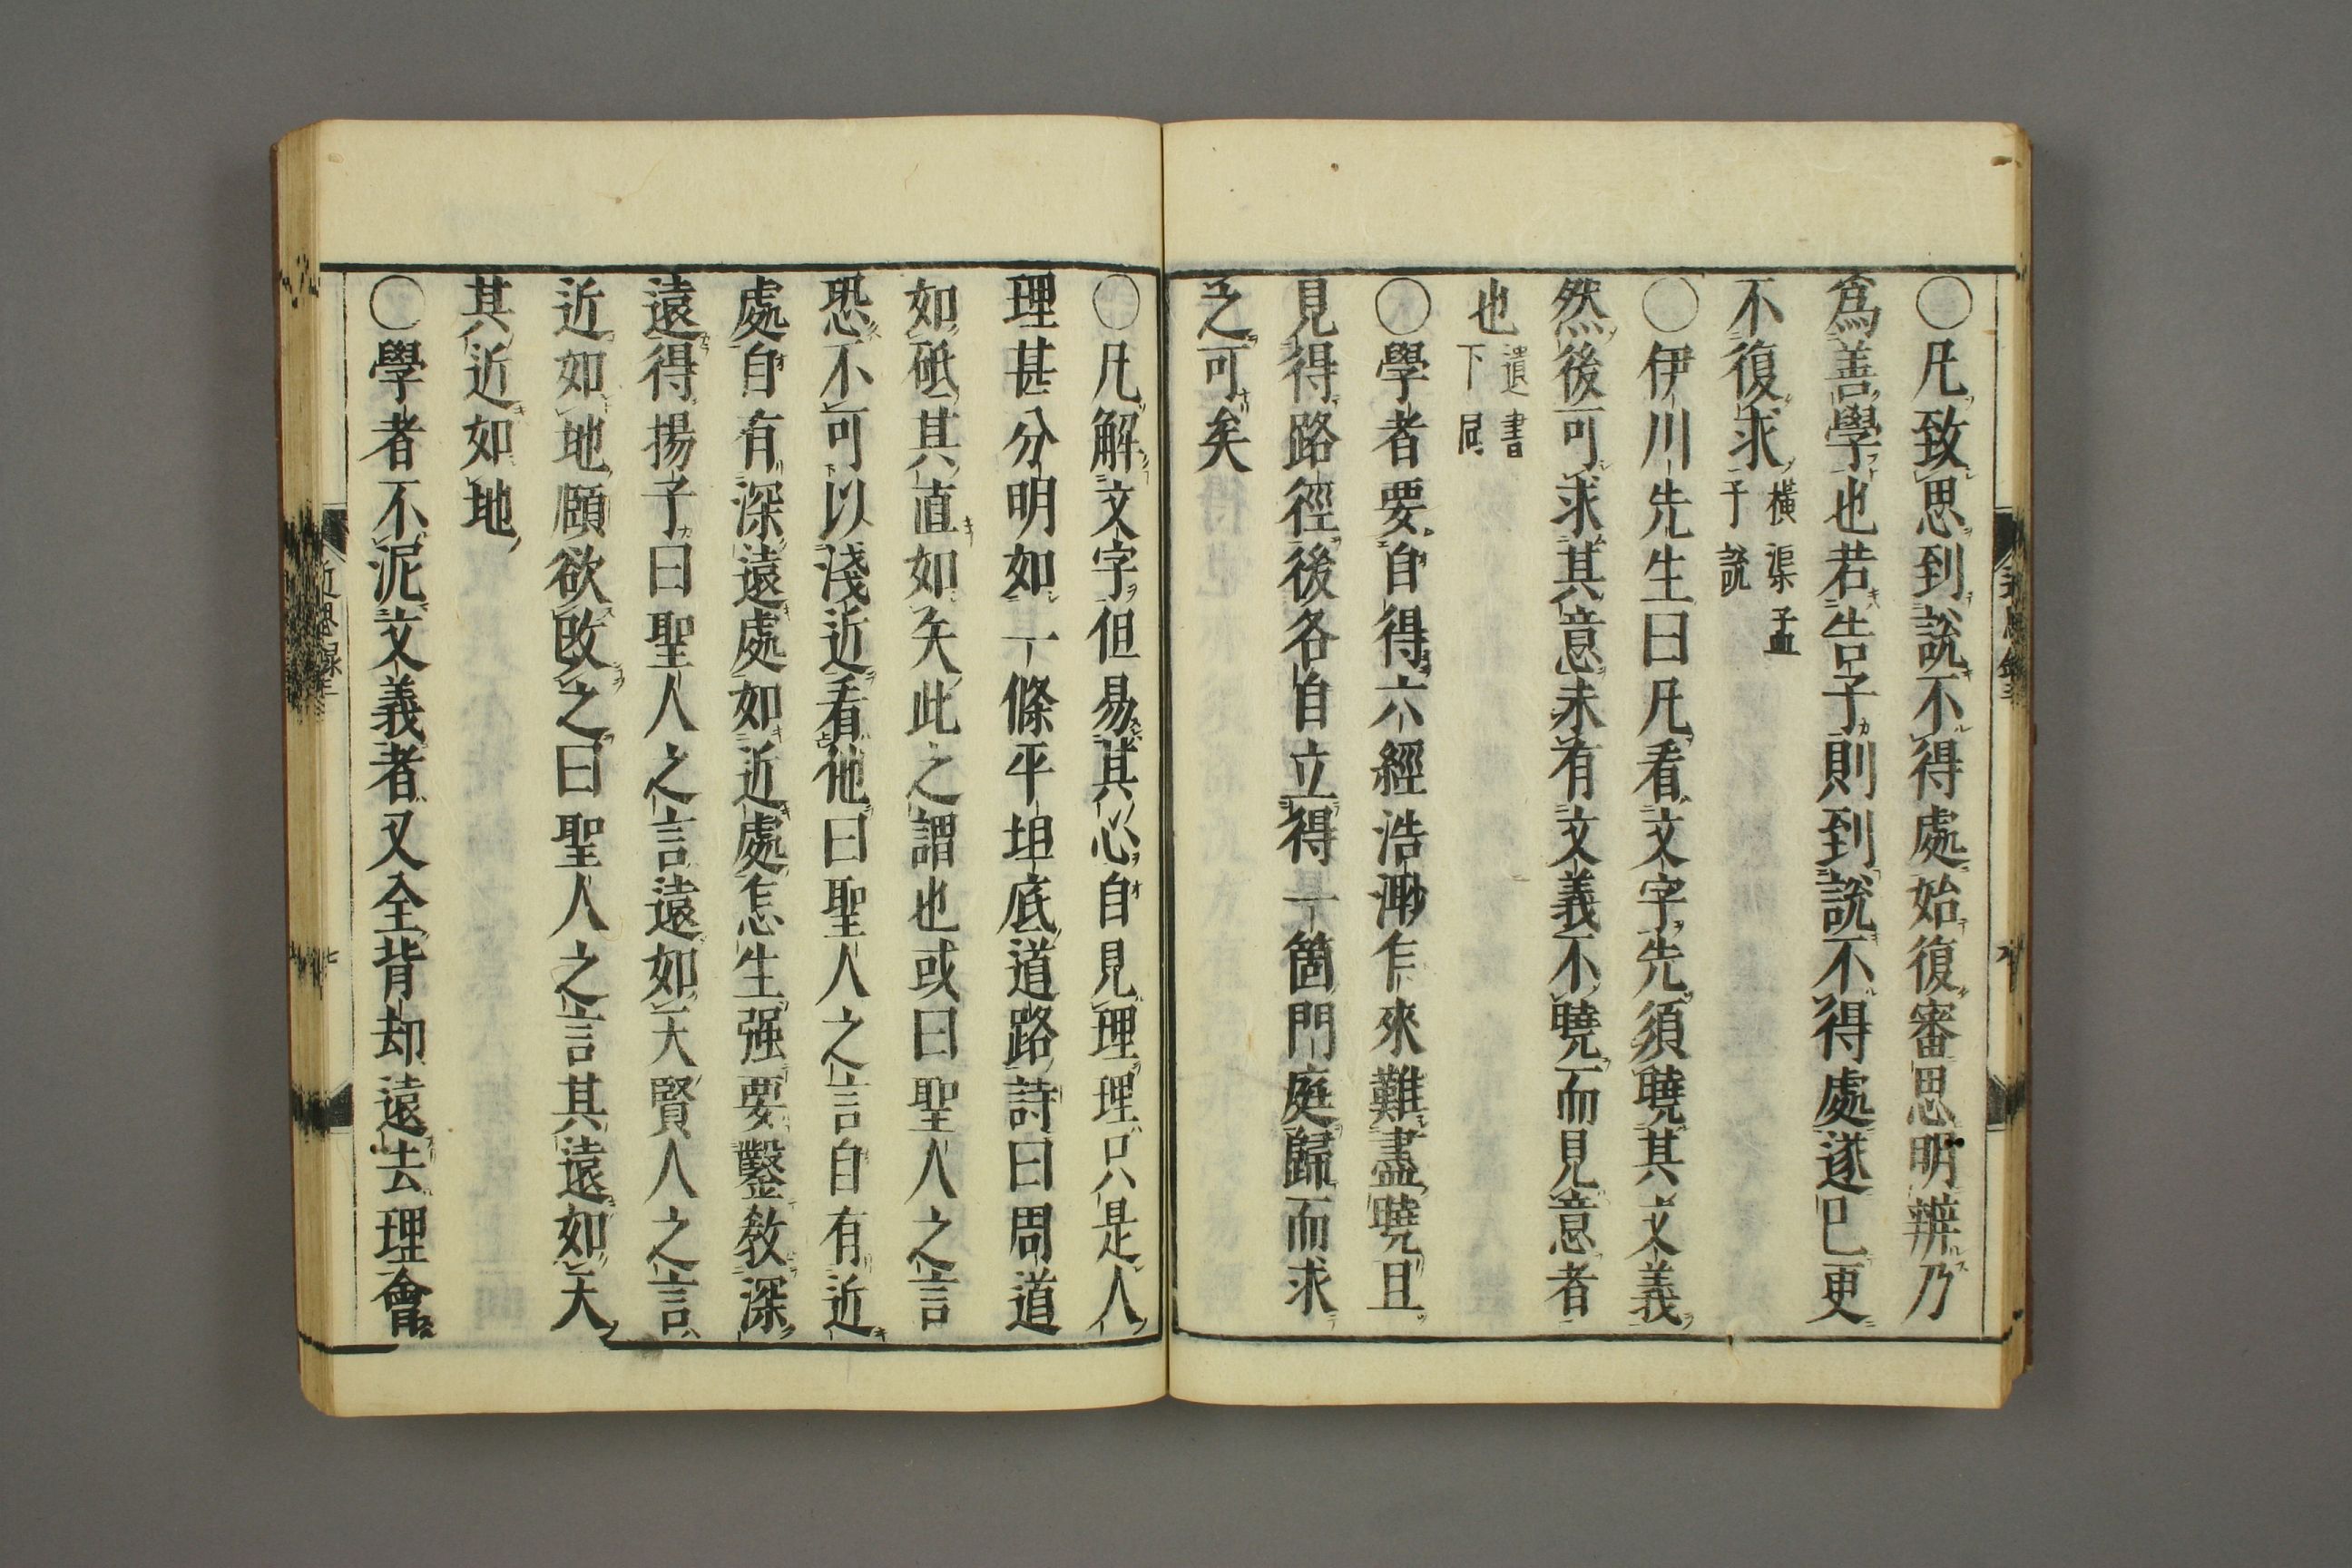 〇凡致思到說不得處始復審思明辨乃
爲善學也若告子則到說不得處遂已更
不復求橫渠孟
子說
〇伊川先生曰凡看文字先須曉其文義
然後可求其意未有文義不曉而見意者
也遺書
下同
〇學者要自得六經浩渺乍來難盡曉且
見得路徑後各自立得一箇門庭歸而求
之可矣
〇凡解文字但易其心自見理理只是人
理甚分明如一條平坦底道路詩曰周道
如砥其直如矢此之謂也或曰聖人之言
恐不可以淺近看他曰聖人之言自有近
處自有深遠處如近處怎生强要鑿敎深
遠得揚子曰聖人之言遠如天賢人之言
近如地頤欲改之曰聖人之言其遠如天
其近如地
〇學者不泥文義者又全背却遠去理會
近思錄三
七